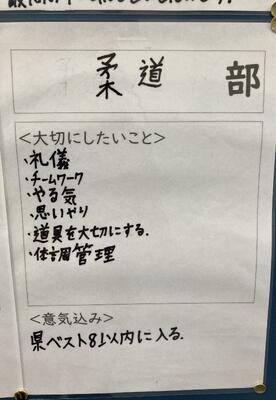 柔道 部
<大切にしたいこと>
・礼儀
・チームワーク
・やる気
・思いやり
・道具を大切にする.
・体調管理
<意気込み>
県ベスト8以内に入る.